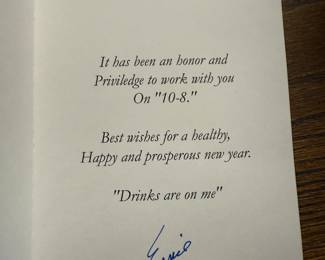 It has been an honor and
Priviledge to work with you
On "10-8."
Best wishes for a healthy,
Happy and prosperous new year.
"Drinks are on me"
Ernie